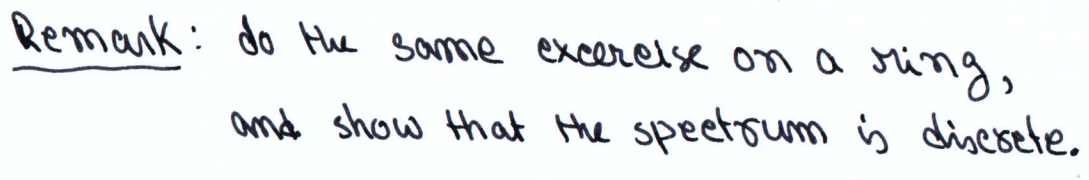 Remark: do the same excercise on a ring,
and show that the spectrum is discrete.